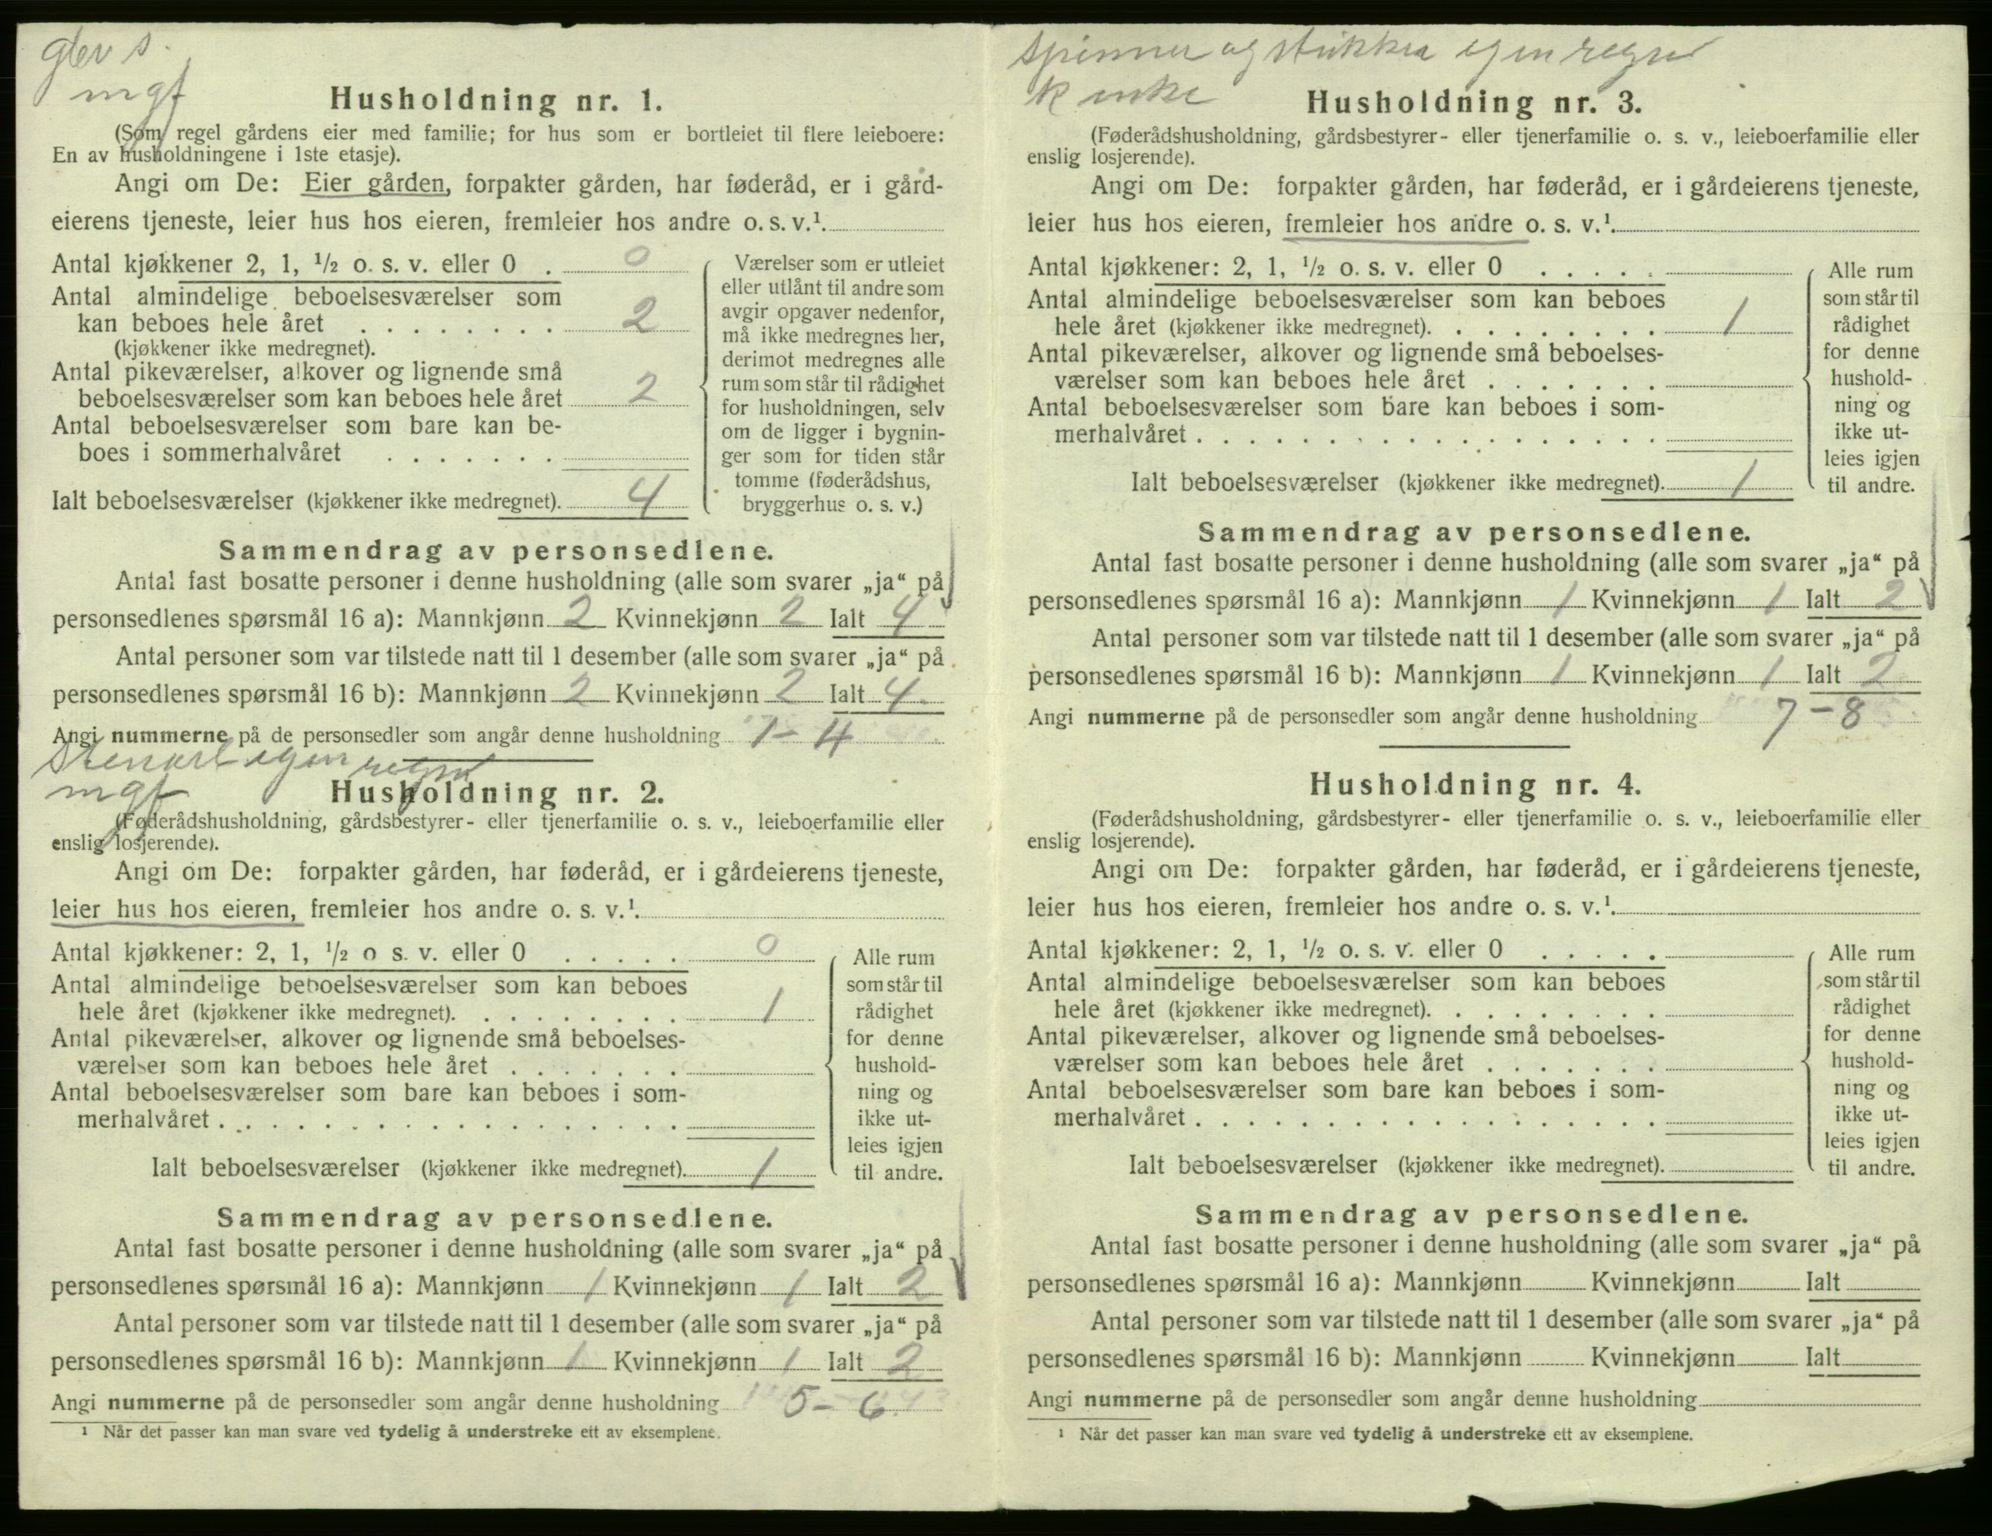 mgf
Husholdning nr. 1.
(Som regel gårdens eier med familie; for hus som er bortleiet til flere leieboere:
En av husholdningene i 1ste etasje).
Angi om De: Eier gården, forpakter gården, har føderåd, er i gård-
eierens tjeneste, leier hus hos eieren, fremleier hos andre o. s. v.¹.
Antal kjøkkener 2, 1, ½ o. s. v. eller 0 . 0
Antal almindelige beboelsesværelser som
kan beboes hele året . . . . . . . . 2
(kjøkkener ikke medregnet).
Antal pikeværelser, alkover og lignende små
beboelsesværelser som kan beboes hele året 2
Antal beboelsesværelser som bare kan be-
boes i sommerhalvåret . . . . . . .
Ialt beboelsesværelser (kjøkkener ikke medregnet). 4
Værelser som er utleiet
eller utlånt til andre som
avgir opgaver nedenfor,
må ikke medregnes her,
derimot medregnes alle
rum som står til rådighet
for husholdningen, selv
om de ligger i bygnin-
ger som for tiden står
tomme (føderådshus,
bryggerhus o. s. v.)
Sammendrag av personsedlene.
Antal fast bosatte personer i denne husholdning (alle som svarer „ja“ på
personsedlenes spørsmål 16 a): Mannkjønn 2 Kvinnekjønn 2 Ialt 4
Antal personer som var tilstede natt til 1 desember (alle som svarer „ja“ på
personsedlenes spørsmål 16 b): Mannkjønn 2 Kvinnekjønn 2 Ialt 4.
Angi nummerne på de personsedler som angår denne husholdning 1-4
egen regn
mgf
Husholdning nr. 2.
(Føderådshusholdning, gårdsbestyrer- eller tjenerfamilie o. s. v., leieboerfamilie eller
enslig losjerende).
Angi om De: forpakter gården, har føderåd, er i gårdeierens tjeneste,
leier hus hos eieren, fremleier hos andre o. s. v.¹.
Antal kjøkkener: 2, 1, ½ o s. v. eller 0 . . . . . 0
Antal almindelige beboelsesværelser som kan beboes
hele året (kjøkkener ikke medregnet). . . . . . . . . 1
Antal pikeværelser, alkover og lignende små beboelses-
værelser som kan beboes hele året . . . . . . .
Antal beboelsesværelser som bare kan beboes i som-
merhalvåret . . . . . . . . . . . . . . . . . .
Ialt beboelsesværelser (kjøkkener ikke medregnet). 1
Alle rum
som står til
rådighet
for denne
hushold-
ning og
ikke ut-
leies igjen
til andre.
Sammendrag av personsedlene.
Antal fast bosatte personer i denne husholdning (alle som svarer „ja“ på
personsedlenes spørsmål 16 a): Mannkjønn 1 Kvinnekjønn 1 Ialt 2
Antal personer som var tilstede natt til 1 desember (alle som svarer „ja“ på
personsedlenes spørsmål 16 b): Mannkjønn 1 Kvinnekjønn 1 Ialt 2
Angi nummerne på de personsedler som angår denne husholdning 5-6
¹ Når det passer kan man svare ved tydelig å understreke ett av eksemplene.
og egen regn
Husholdning nr. 3.
(Føderådshusholdning, gårdsbestyrer- eller tjenerfamilie o. s. v., leieboerfamilie eller
enslig losjerende).
Angi om De: forpakter gården, har føderåd, er i gårdeierens tjeneste,
leier hus hos eieren, fremleier hos andre o. s. v.¹.
Antal kjøkkener: 2, 1, ½ o. s. v. eller 0 . . . . .
Antal almindelige beboelsesværelser som kan beboes
hele året (kjøkkener ikke medregnet). . . . . . . . . 1
Antal pikeværelser, alkover og lignende små beboelses-
værelser som kan beboes hele året . . . . . . .
Antal beboelsesværelser som bare kan beboes i som-
merhalvåret . . . . . . . . . . . . . . . . . .
Ialt beboelsesværelser (kjøkkener ikke medregnet). 1
Alle rum
som står til
rådighet
for denne
hushold-
ning og
ikke ut-
leies igjen
til andre.
Sammendrag av personsedlene.
Antal fast bosatte personer i denne husholdning (alle som svarer „ja“ på
personsedlenes spørsmål 16 a): Mannkjønn 1 Kvinnekjønn 1 Ialt 2
Antal personer som var tilstede natt til 1 desember (alle som svarer „ja“ på
personsedlenes spørsmål 16 b): Mannkjønn 1 Kvinnekjønn 1 Ialt 2
Angi nummerne på de personsedler som angår denne husholdning 7-8
Husholdning nr. 4.
(Føderådshusholdning, gårdsbestyrer- eller tjenerfamilie o. s. v., leieboerfamilie eller
enslig losjerende).
Angi om De: forpakter gården, har føderåd, er i gårdeierens tjeneste,
leier hus hos eieren, fremleier hos andre o. s. v.¹.
Antal kjøkkener: 2, 1, ½ o. s. v. eller 0 . . . . .
Antal almindelige beboelsesværelser som kan beboes
hele året (kjøkkener ikke medregnet). . . . . . . . .
Antal pikeværelser, alkover og lignende små beboelses-
værelser som kan beboes hele året . . . . . . .
Antal beboelsesværelser som bare kan beboes i som-
merhalvåret . . . . . . . . . . . . . . . . . .
Ialt beboelsesværelser (kjøkkener ikke medregnet).
Alle rum
som står til
rådighet
for denne
hushold-
ning og
ikke ut-
leies igjen
til andre.
Sammendrag av personsedlene.
Antal fast bosatte personer i denne husholdning (alle som svarer „ja“ på
personsedlenes spørsmål 16 a): Mannkjønn Kvinnekjønn Ialt
Antal personer som var tilstede natt til 1 desember (alle som svarer „ja“ på
personsedlenes spørsmål 16 b): Mannkjønn Kvinnekjønn Ialt
Angi nummerne på de personsedler som angår denne husholdning
¹ Når det passer kan man svare ved tydelig å understreke ett av eksemplene.